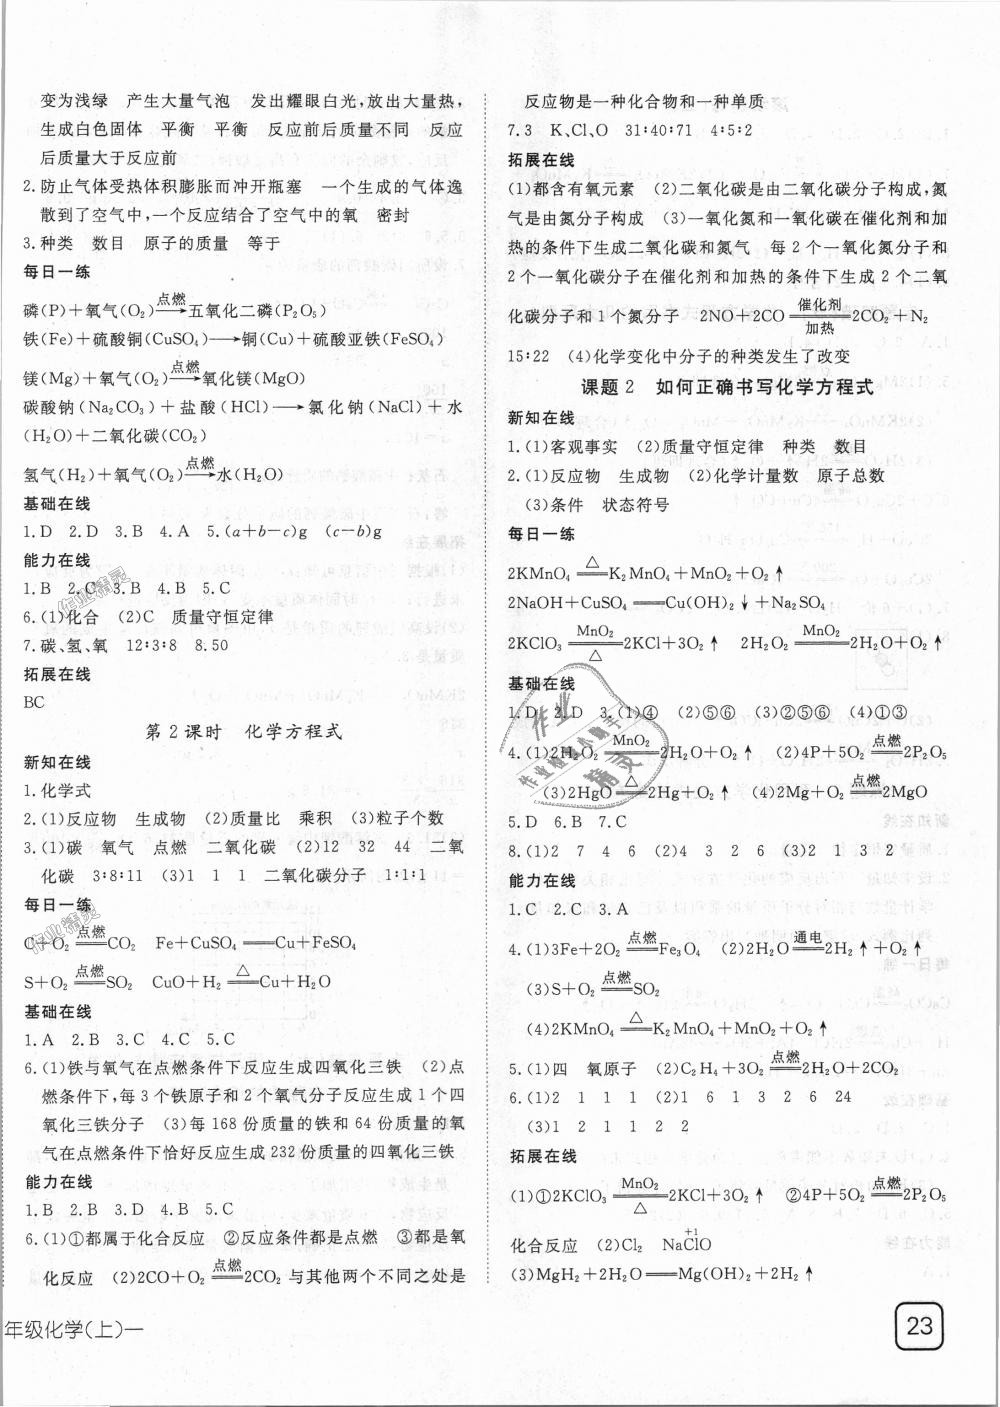 变为浅绿　产生大量气泡　发出耀眼白光,放出大量热,
生成白色固体　平衡　平衡　反应前后质量不同　反应
后质量大于反应前
2.防止气体受热体积膨胀而冲开瓶塞　一个生成的气体逸
散到了空气中,一个反应结合了空气中的氧　密封
3.种类　数目　原子的质量　等于
每日一练
磷(P)+氧气(O₂)—点燃→五氧化二磷(P₂O₅)
铁(Fe)+硫酸铜(CuSO₄)⟶铜(Cu)+硫酸亚铁(FeSO₄)
镁(Mg)+氧气(O₂)—点燃→氧化镁(MgO)
碳酸钠(Na₂CO₃)+盐酸(HCl)⟶氯化钠(NaCl)+水
(H₂O)+二氧化碳(CO₂)
氢气(H₂)+氧气(O₂)—点燃→水(H₂O)
基础在线
1.D　2.D　3.B　4.A　5.(a+b-c)g　(c-b)g
能力在线
1.B　2.C　3.B　4.B　5.C
6.(1)化合　(2)C　质量守恒定律
7.碳、氢、氧　12∶3∶8　8.50
拓展在线
BC
第2课时　化学方程式
新知在线
1.化学式
2.(1)反应物　生成物　(2)质量比　乘积　(3)粒子个数
3.(1)碳　氧气　点燃　二氧化碳　(2)12　32　44　二氧
化碳　3∶8∶11　(3)1　1　1　二氧化碳分子　1∶1∶1
每日一练
C+O₂ =点燃= CO₂　Fe+CuSO₄ ══ Cu+FeSO₄
S+O₂ =点燃= SO₂　CuO+H₂ =△= Cu+H₂O
基础在线
1.A　2.B　3.C　4.C　5.C
6.(1)铁与氧气在点燃条件下反应生成四氧化三铁　(2)点
燃条件下,每3个铁原子和2个氧气分子反应生成1个四
氧化三铁分子　(3)每168份质量的铁和64份质量的氧
气在点燃条件下恰好反应生成232份质量的四氧化三铁
能力在线
1.B　2.B　3.D　4.B　5.C
6.(1)①都属于化合反应　②反应条件都是点燃　③都是氧
化反应　(2)2CO+O₂ =点燃= 2CO₂ 与其他两个不同之处是
年级化学(上)一
反应物是一种化合物和一种单质
7.3　K、Cl、O　31∶40∶71　4∶5∶2
拓展在线
(1)都含有氧元素　(2)二氧化碳是由二氧化碳分子构成,氮
气是由氮分子构成　(3)一氧化氮和一氧化碳在催化剂和加
热的条件下生成二氧化碳和氮气　每2个一氧化氮分子和
2个一氧化碳分子在催化剂和加热的条件下生成2个二氧
化碳分子和1个氮分子　2NO+2CO =催化剂/加热= 2CO₂+N₂
15∶22　(4)化学变化中分子的种类发生了改变
课题2　如何正确书写化学方程式
新知在线
1.(1)客观事实　(2)质量守恒定律　种类　数目
2.(1)反应物　生成物　(2)化学计量数　原子总数
(3)条件　状态符号
每日一练
2KMnO₄ =△= K₂MnO₄+MnO₂+O₂↑
2NaOH+CuSO₄ ══ Cu(OH)₂↓+Na₂SO₄
2KClO₃ =MnO₂/△= 2KCl+3O₂↑　2H₂O₂ =MnO₂= 2H₂O+O₂↑
基础在线
1.D　2.D　3.(1)④　(2)⑤⑥　(3)②⑤⑥　(4)①③
4.(1)2H₂O₂ =MnO₂= 2H₂O+O₂↑　(2)4P+5O₂ =点燃= 2P₂O₅
(3)2HgO =△= 2Hg+O₂↑　(4)2Mg+O₂ =点燃= 2MgO
5.D　6.B　7.C
8.(1)2　7　4　6　(2)4　3　2　6　(3)2　1　3　2
能力在线
1.C　2.C　3.A
4.(1)3Fe+2O₂ =点燃= Fe₃O₄　(2)2H₂O =通电= 2H₂↑+O₂↑
(3)S+O₂ =点燃= SO₂
(4)2KMnO₄ =△= K₂MnO₄+MnO₂+O₂↑
5.(1)四　氧原子　(2)C₂H₄+3O₂ =点燃= 2H₂O+2CO₂
6.(1)2　1　1　1　(2)1　6　1　3　2　6　24
(3)1　2　1　1　2　2
拓展在线
(1)①2KClO₃ =MnO₂/△= 2KCl+3O₂↑　②4P+5O₂ =点燃= 2P₂O₅
化合反应　(2)Cl₂　NaC⁺¹lO
(3)MgH₂+2H₂O ══ Mg(OH)₂+2H₂↑
23